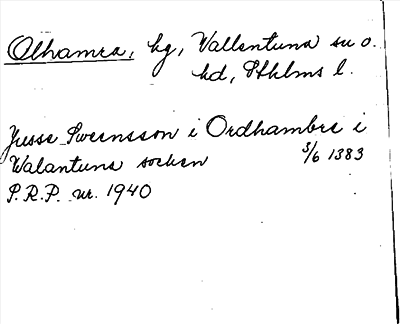 Olhamra, hg, Vallentuna sn o.
hd, Sthlms l.
Jusse Swensson i Ordhambre i
Walantuna socken 3/6 1383
P.R.P. nr. 1940